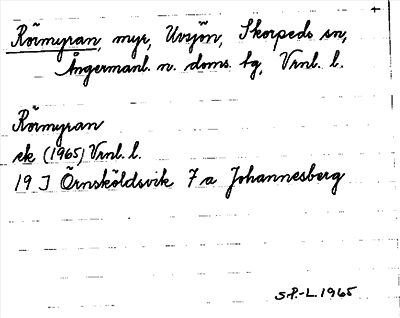 Rörmyran, myr, Uvsjön, Skorpeds sn,
Ångermanl. n. doms. bg, Vrnl. l.
Rörmyran
ek (1965) Vrnl. l.
19 J Örnsköldsvik 7 a Johannesberg
S.P.-L. 1965